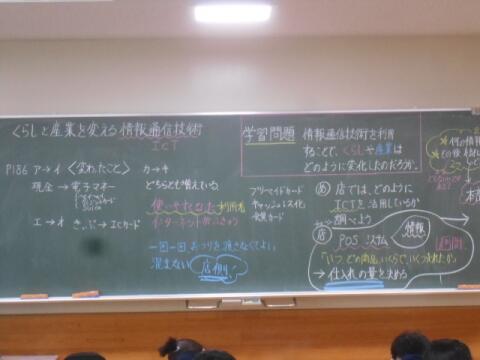 くらしと産業を変える情報通信技術
ICT
P186 ア→イ〈変わったこと〉
現金→電子マネー
Suica
エ→オ きっぷ→ICカード
カ→キ
どちらとも増えている。
使いやすくなった
利用者
インターネット
一回一回おつりを頂さなくてよい
混まない
店側
学習問題 情報通信技術を利用
することで、くらしや産業は
どのように変化したのだろうか。
プリペイドカード
キャッシュレス化
会員カード
め 店では、どのように
ICTを活用しているか
調べよう
店 POSシステム
情報
「いつ、どの商品、いくらで、いくつ売れたか」
→仕入れの量を決める
何の情報